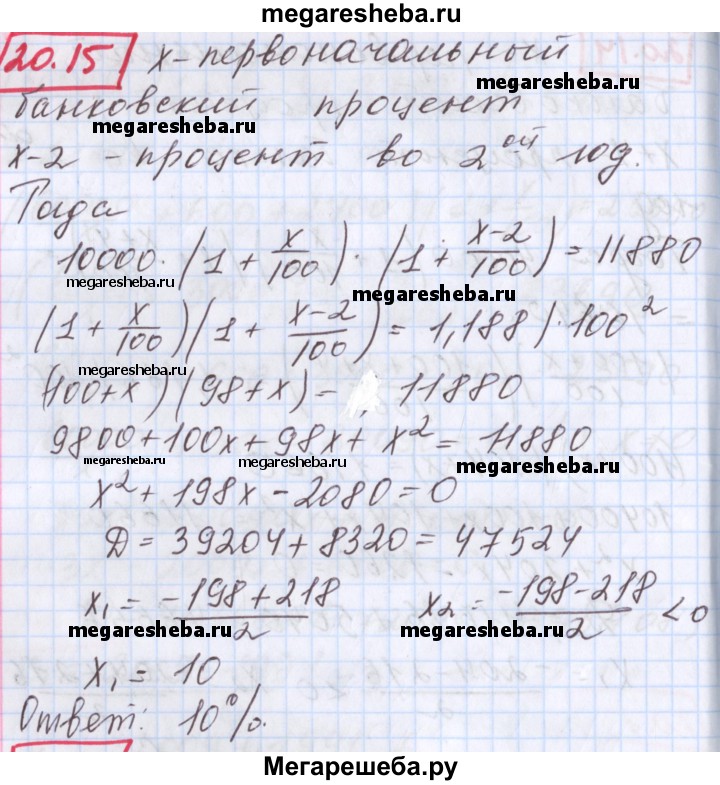 megaresheba.ru
20.15 x - первоначальный
megaresheba.ru
банковский процент
megaresheba.ru
x-2 - процент во 2ой год.
Тогда
10000·(1 + x/100)·(1 + x-2/100) = 11880
megaresheba.ru
megaresheba.ru
(1 + x/100)(1 + x-2/100) = 1,188 |·100²
megaresheba.ru
(100+x)(98+x) = 11880
9800+100x+98x+x² = 11880
megaresheba.ru megaresheba.ru megaresheba.ru
x² + 198x - 2080 = 0
Д = 39204 + 8320 = 47524
x₁ = -198+218/2 x₂ = -198-218/2 < 0
megaresheba.ru megaresheba.ru
x₁ = 10
Ответ: 10%.
Мегарешеба.ру